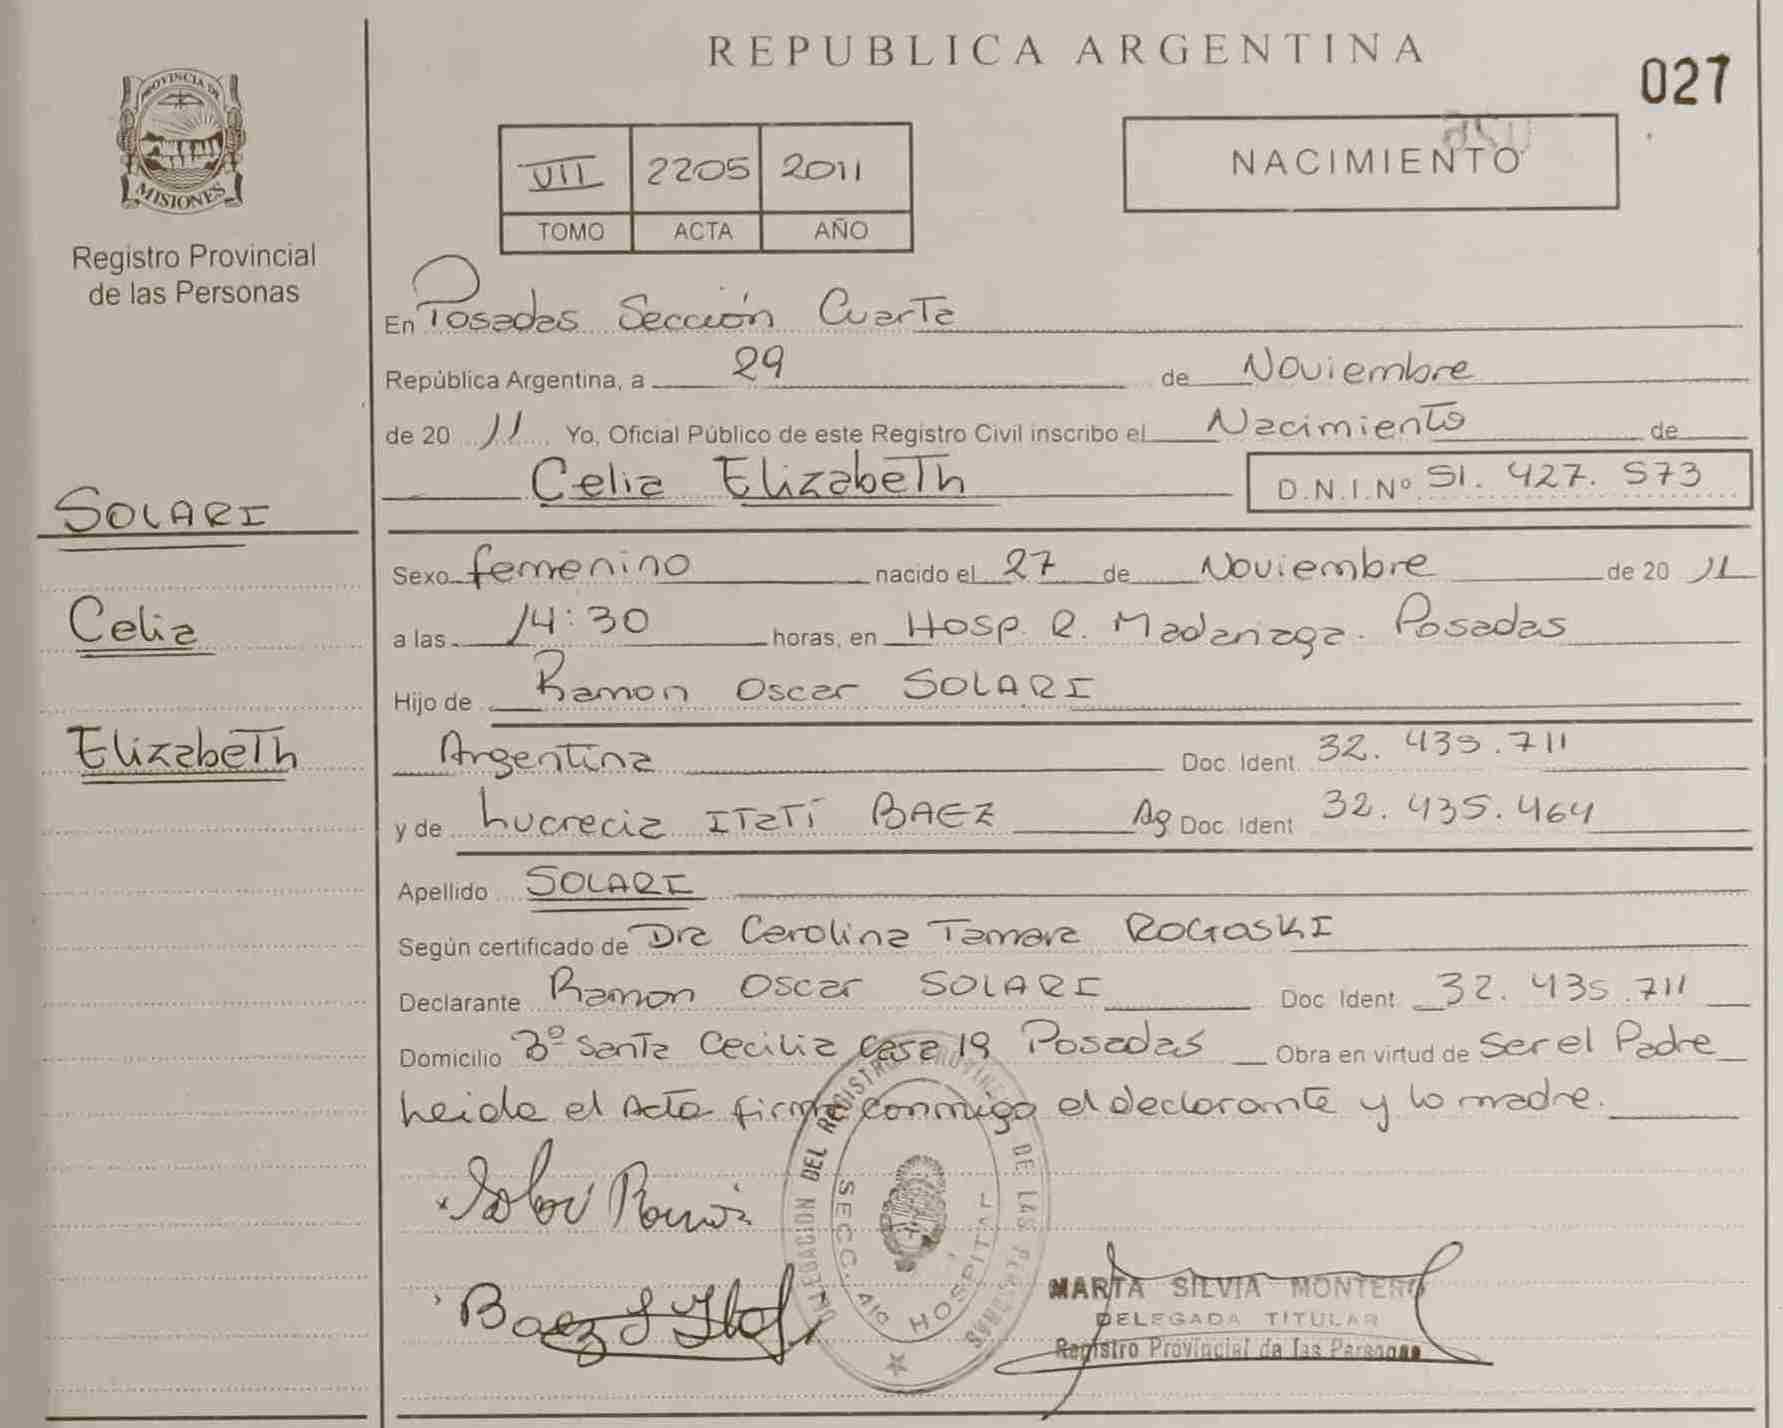 REPUBLICA ARGENTINA
027
PROVINCIA DE
MISIONES
Registro Provincial
de las Personas
VII 2205 2011
TOMO ACTA AÑO
NACIMIENTO
En Posadas Sección Cuarta
República Argentina, a 29 de Noviembre
de 20 11 Yo, Oficial Público de este Registro Civil inscribo el Nacimiento de
Celia Elizabeth D.N.I.Nº 51. 427. 573
SOLARI
Celia
Elizabeth
Sexo femenino nacido el 27 de Noviembre de 20 11
a las 14:30 horas, en Hosp. R. Madariaga. Posadas
Hijo de Ramon Oscar SOLARI
Argentina Doc. Ident. 32. 435.711
y de Lucrecia ITatí BAEZ Ag Doc. Ident 32. 435. 464
Apellido SOLARI
Según certificado de Dra Carolina Tamara ROGOSKI
Declarante Ramon Oscar SOLARI Doc. Ident 32. 435.711
Domicilio Bº Santa Cecilia casa 19 Posadas Obra en virtud de Ser el Padre
Leida el Acta firma conmigo el declarante y la madre.
Solari Ramón
Baez
DELEGACION DEL REGISTRO PROVINCIAL DE LAS PERSONAS
SECC. 4ta HOSPITAL
MARTA SILVIA MONTERO
DELEGADA TITULAR
Registro Provincial de las Personas